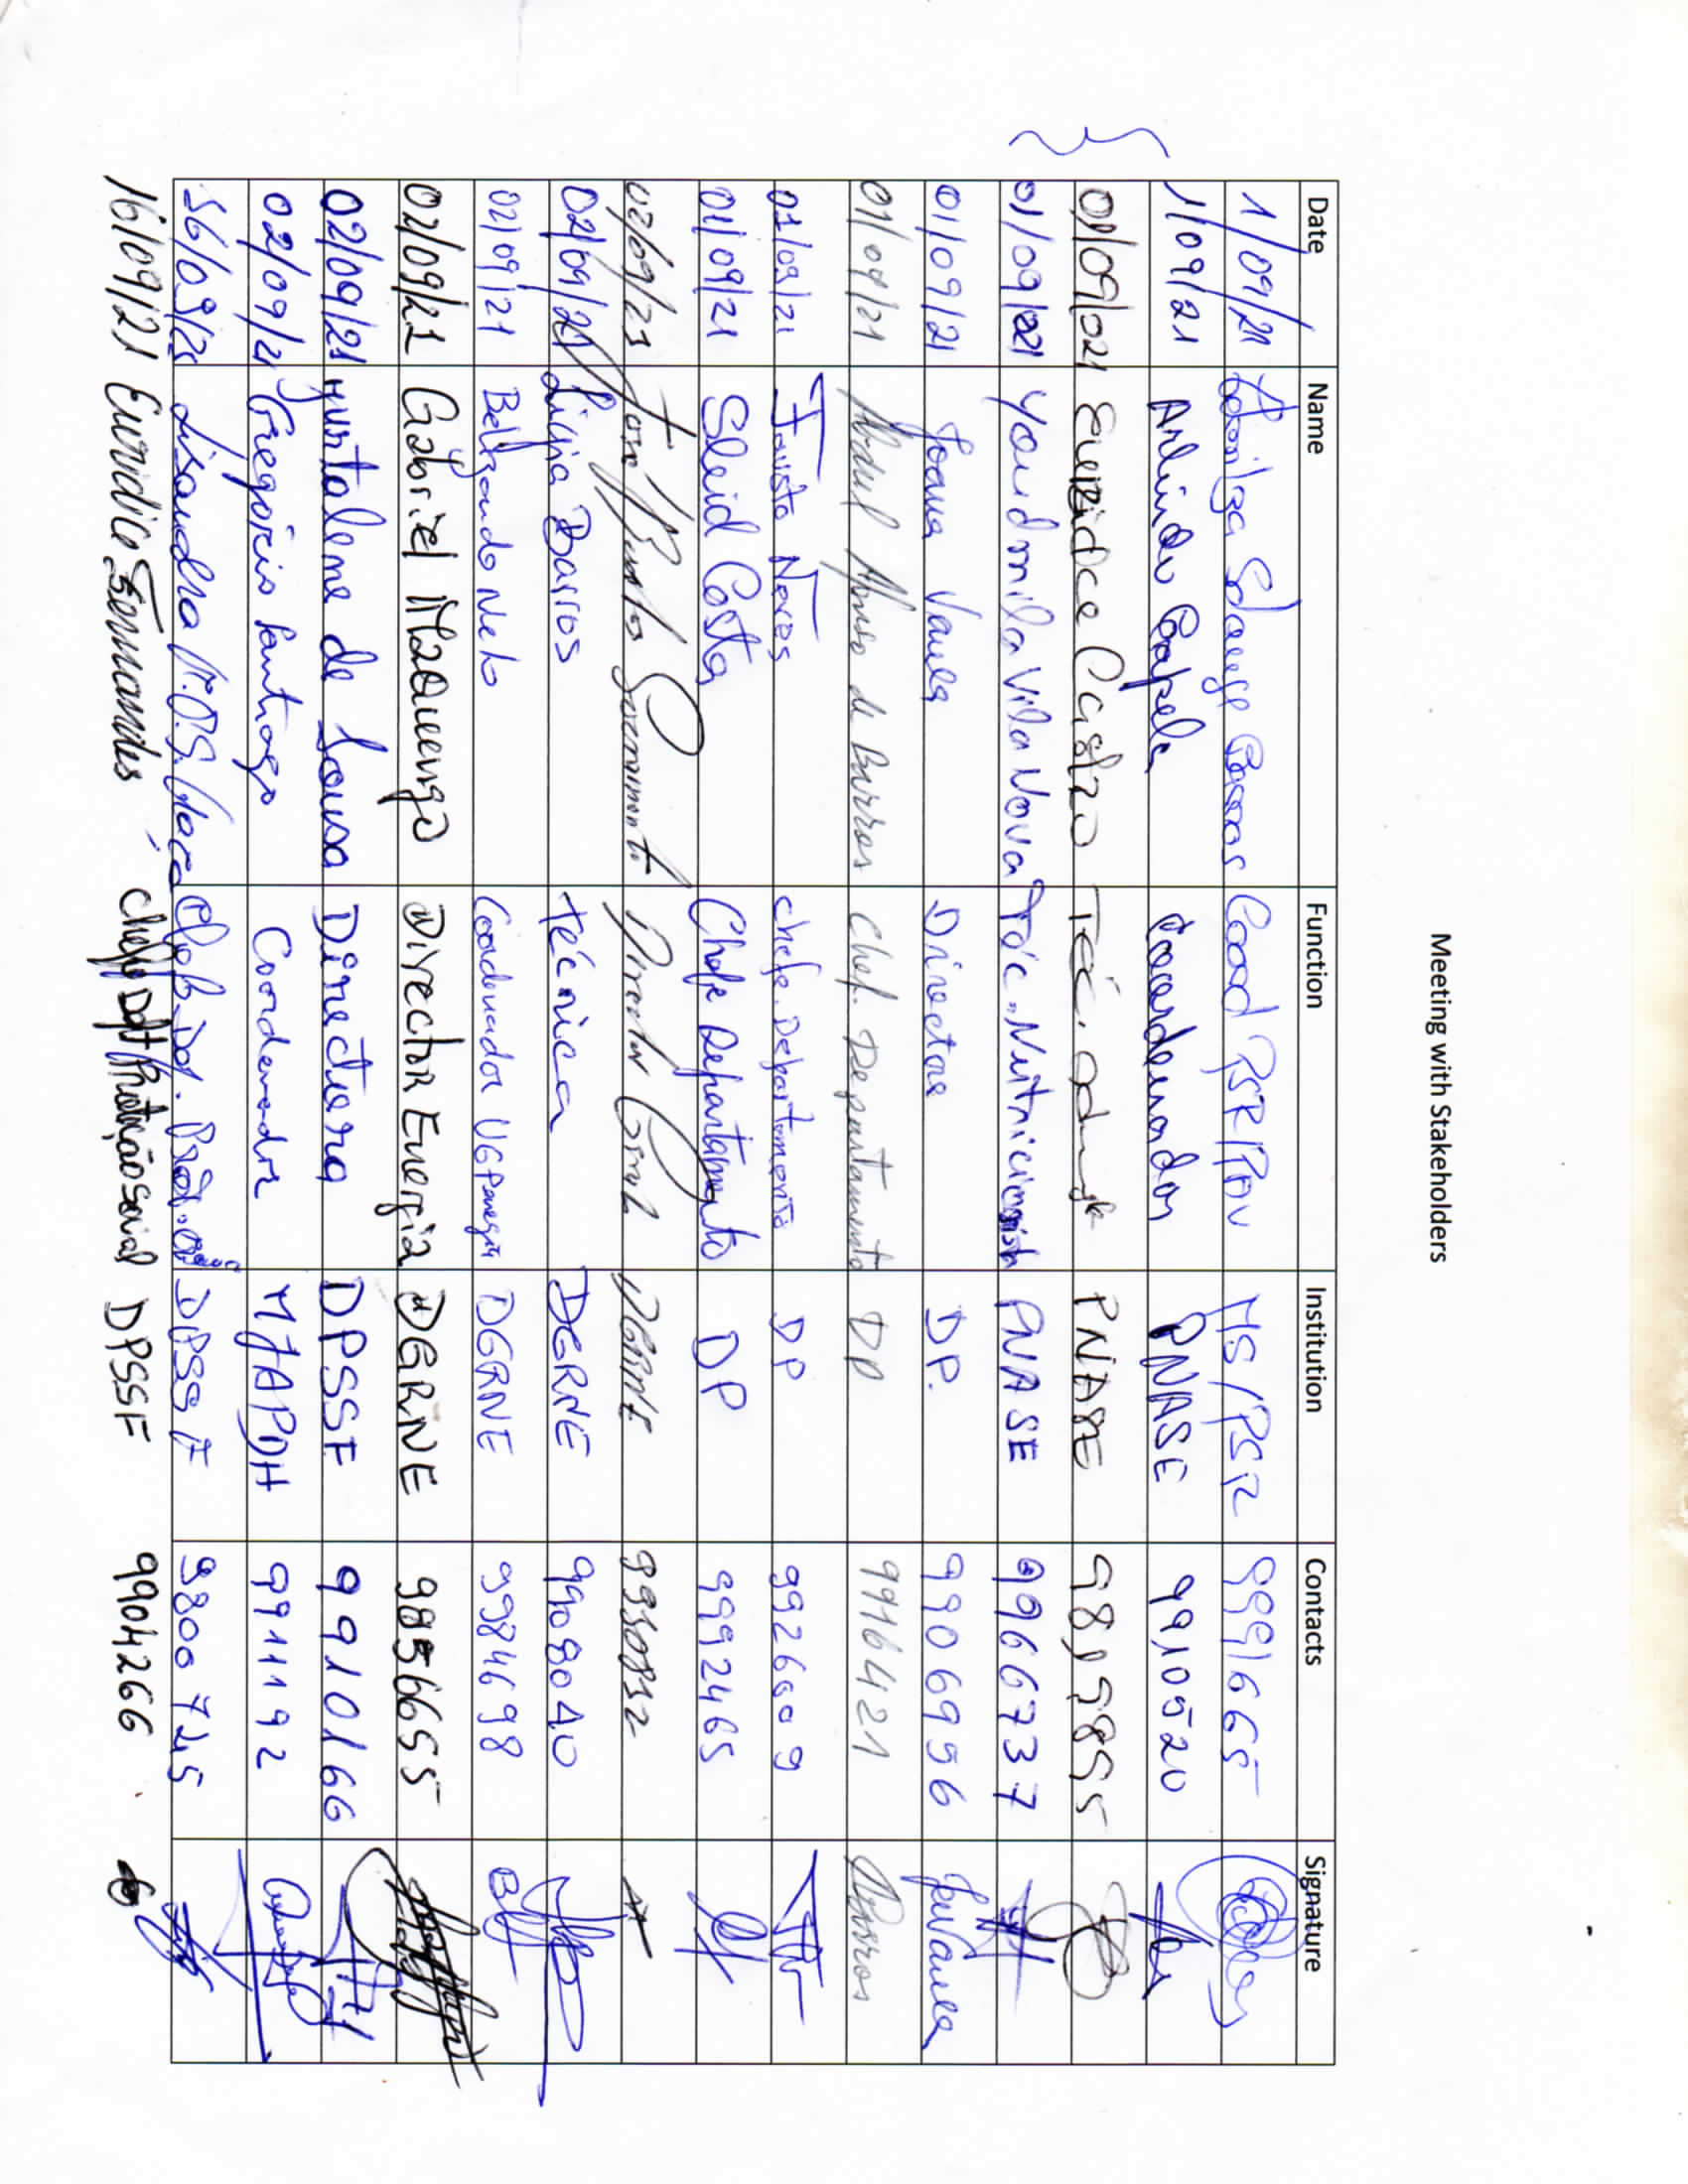 Meeting with Stakeholders
Date Name Function Institution Contacts Signature
1/09/21 Solange Coord PSR/PAV MS/PSR 9991665
1/09/21 Arlindo Capela Coordenador PNASE 9910520
01/09/021 Eunidce Castro Téc. PNASE 9895855
01/09/021 Youdmila Vila Nova Téc. Nutricionista PNASE 9966737
01/09/21 Joana Varela Directora DP. 9906956
01/09/21 Abdul Afonso de Barros Chef. Departamento DP 9916421 Abarros
01/09/21 Fausto Neves chefe. Departamento DP 9926009
01/09/21 Sleid Costa Chefe Departamento DP 9992465
02/09/21 José Bastos Sacramento Director Geral DGRNE
02/09/21 Ligia Barros técnica DGRNE 9908040
02/09/21 Belizardo Neto Coordenador DGRNE 9984698
02/09/21 Gabriel Maquengo Director Energia DGRNE 9856655
02/09/21 de Sousa Directora DPSSF 9910166
02/09/21 Gregório Santiago Coordenador MJAPDH 9911192
16/09/21 Lisandra DPSSF 9800725
16/09/21 Euridice Fernandes Chefe Dpt Proteção social DPSSF 9904266